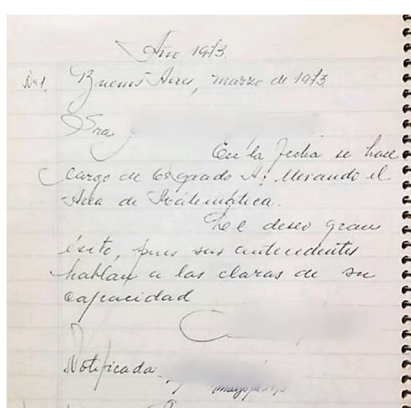 Año 1973.
Nº1. Buenos Aires, marzo de 1973
Sra
En la fecha se hace
cargo de 6º grado A; llevando el
Area de Matemática.
Le deseo gran
éxito, pues sus antecedentes
hablan a las claras de su
capacidad
Notificada